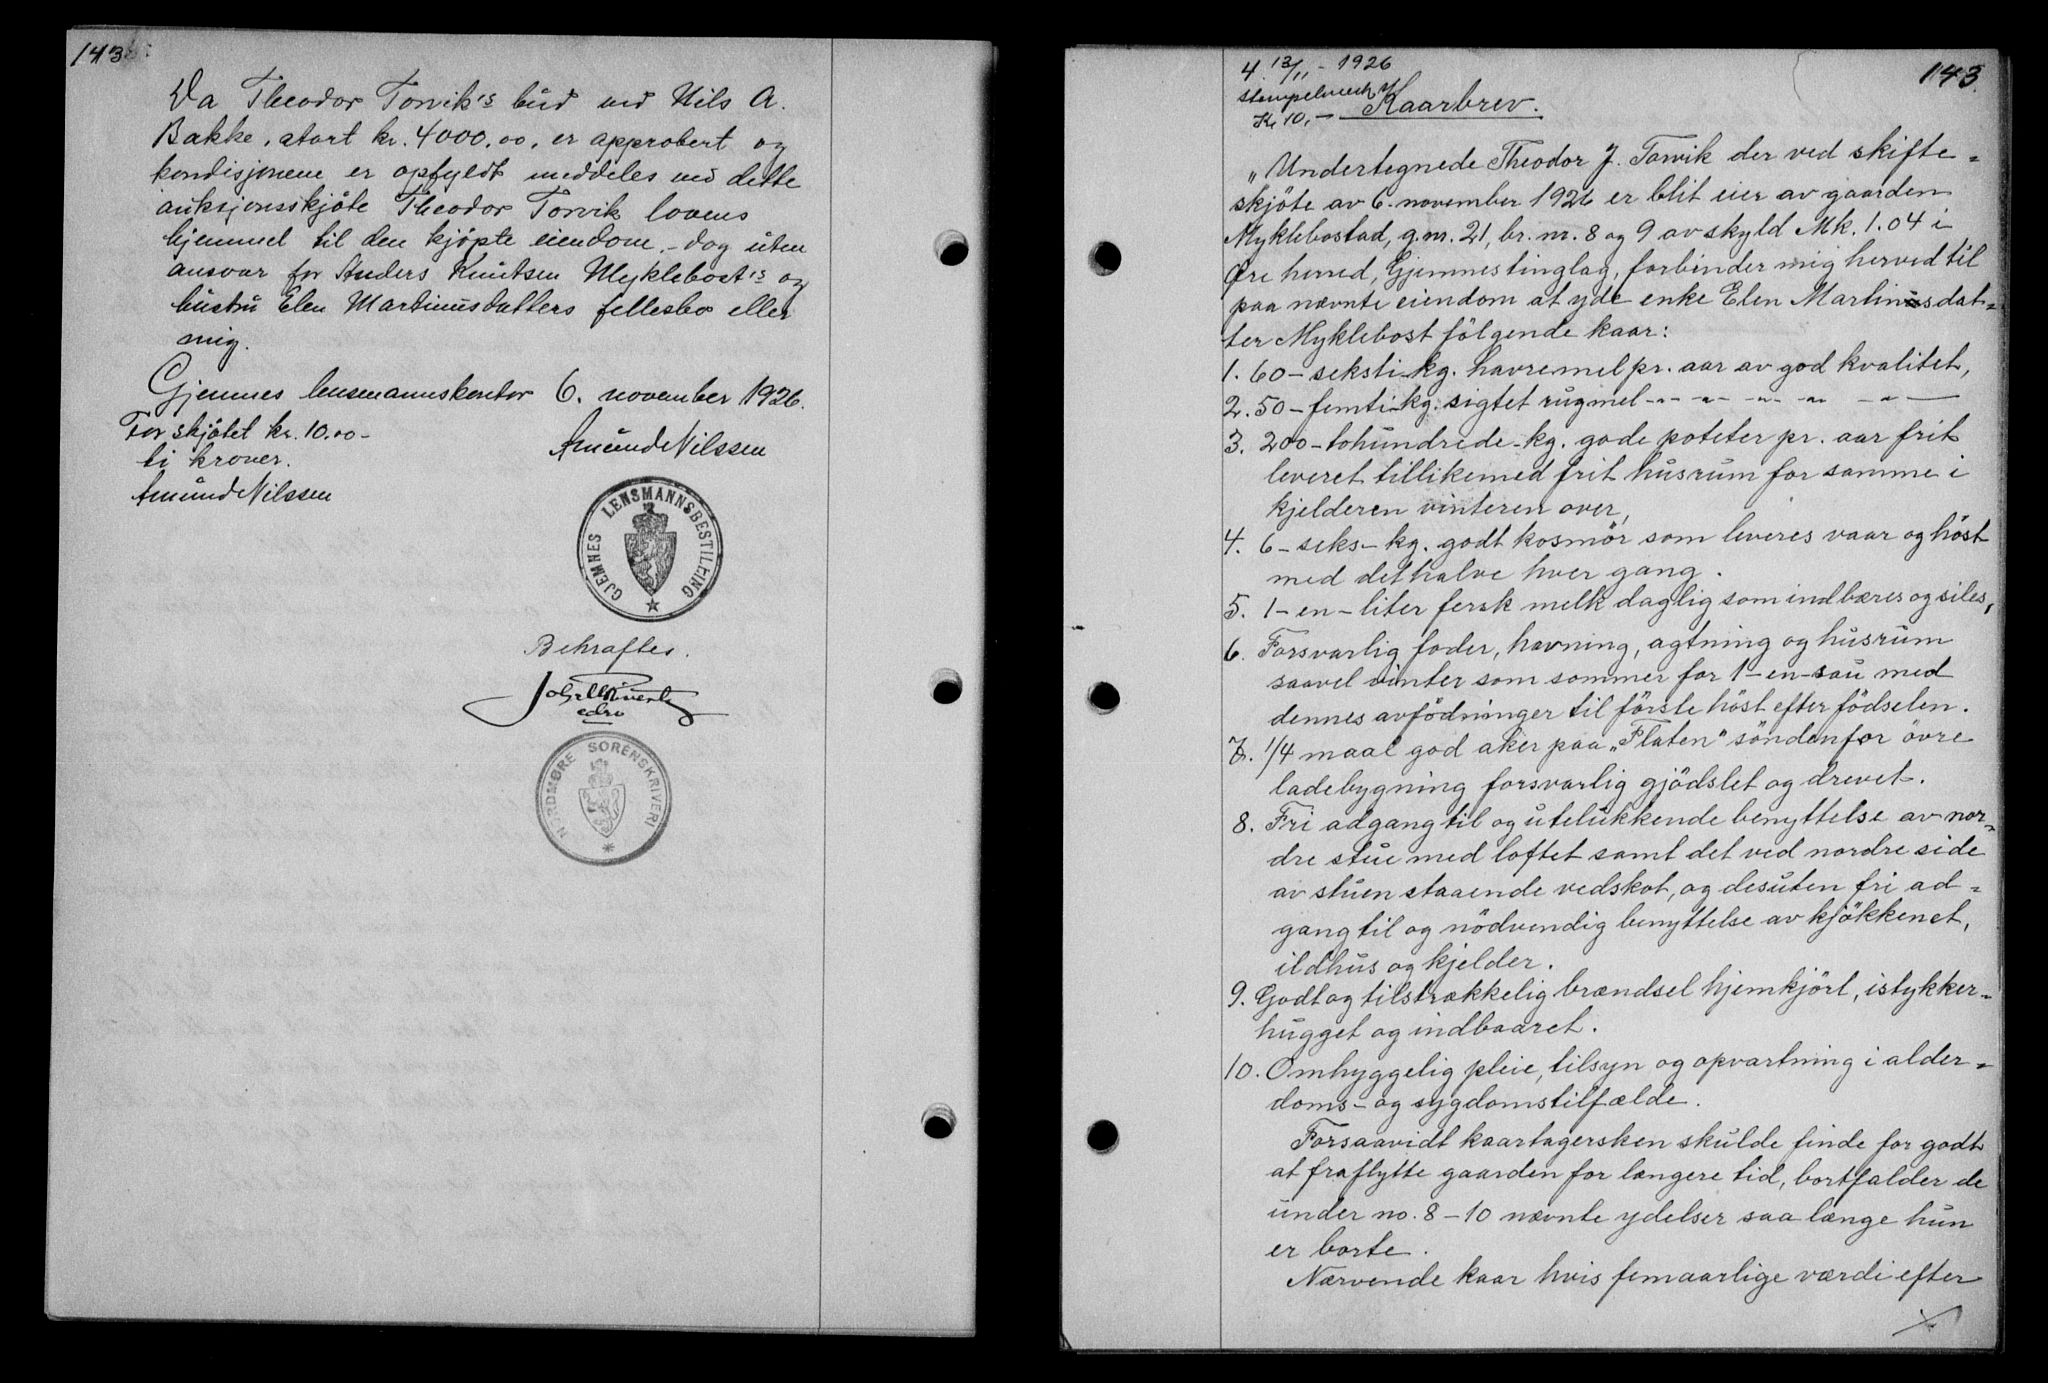 143
Da Theodor Torvik's bud ved Nils A.
Bakke, stort kr. 4000,00, er approbert og
kondisjonene er opfyldt meddeles ved dette
auksjonsskjöte Theodor Torvik lovens
hjemmel til den kjöpte eiendom, - dog uten
ansvar for Anders Knutsen Myklebost's og
hustru Elen Martinusdatters fellesbo eller
mig.
Gjemnes lensmannskontor 6. november 1926.
For skjötet kr. 10.00 -
ti kroner.
Amund Nilssen
Amund Nilssen
GJEMNES LENSMANNSBESTILLING
Bekraftes.
edro
NORDMØRE SORENSKRIVERI
4. 13/11 - 1926
143
Stempelmerk.
Kr 10,-
Kaarbrev.
"Undertegnede Theodor J. Torvik der ved skifte=
skjöte av 6. november 1926 er blit eier av gaarden
Myklebostad, g.nr. 21, br. nr. 8 og 9 av skyld Mk. 1.04 i
Øre herred, Gjemnes tinglag, forbinder mig herved til
paa nævnte eiendom at yde enke Elen Martinusdat=
ter Myklebost fölgende kaar:
1. 60 - seksti - kg. havremel pr. aar av god kvalitet,
2. 50 - femti - kg. sigtet rugmel -"- -"- -"- -"- -"-
3. 200 - tohundrede - kg. gode poteter pr. aar frit
leveret tillikemed frit husrum for samme i
kjelderen vinteren over,
4. 6 - seks - kg. godt kosmör som leveres vaar og höst
med det halve hver gang.
5. 1 - en - liter fersk melk daglig som indbæres og siles,
6. Forsvarlig foder, havning, agtning og husrum
saavel vinter som sommer for 1 - en - sau med
dennes avfödninger til förste höst efter födselen.
7. 1/4 maal god aker paa "Flaten" söndenfor övre
ladebygning forsvarlig gjödslet og drevet.
8. Fri adgang til og utelukkende benyttelse av nor=
dre stue med loftet samt det ved nordre side
av stuen staaende vedskot, og desuten fri ad=
gang til og nödvendig benyttelse av kjökkenet,
ildhus og kjelder.
9. Godt og tilstrækkelig brændsel hjemkjört, istykker=
hugget og indbaaret.
10. Omhyggelig pleie, tilsyn og opvartning i alder=
doms- og sygdomstilfælde.
Forsaavidt kaartagersken skulde finde for godt
at fraflytte gaarden for længere tid, bortfalder de
under no. 8 - 10 nævnte ydelser saa længe hun
er borte.
Nærvende kaar hvis femaarlige værdi efter